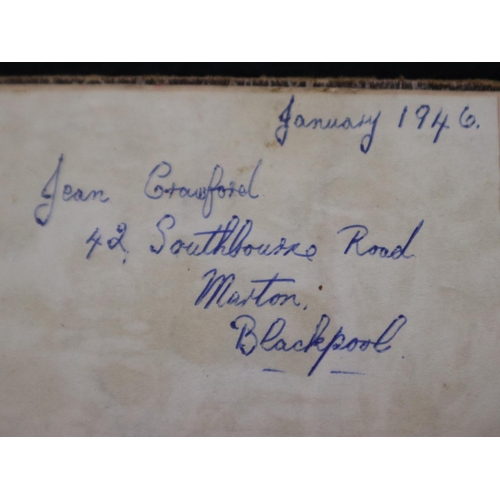 January 1946.
Jean Crawford.
42, Southbourne Road
Marton,
Blackpool.